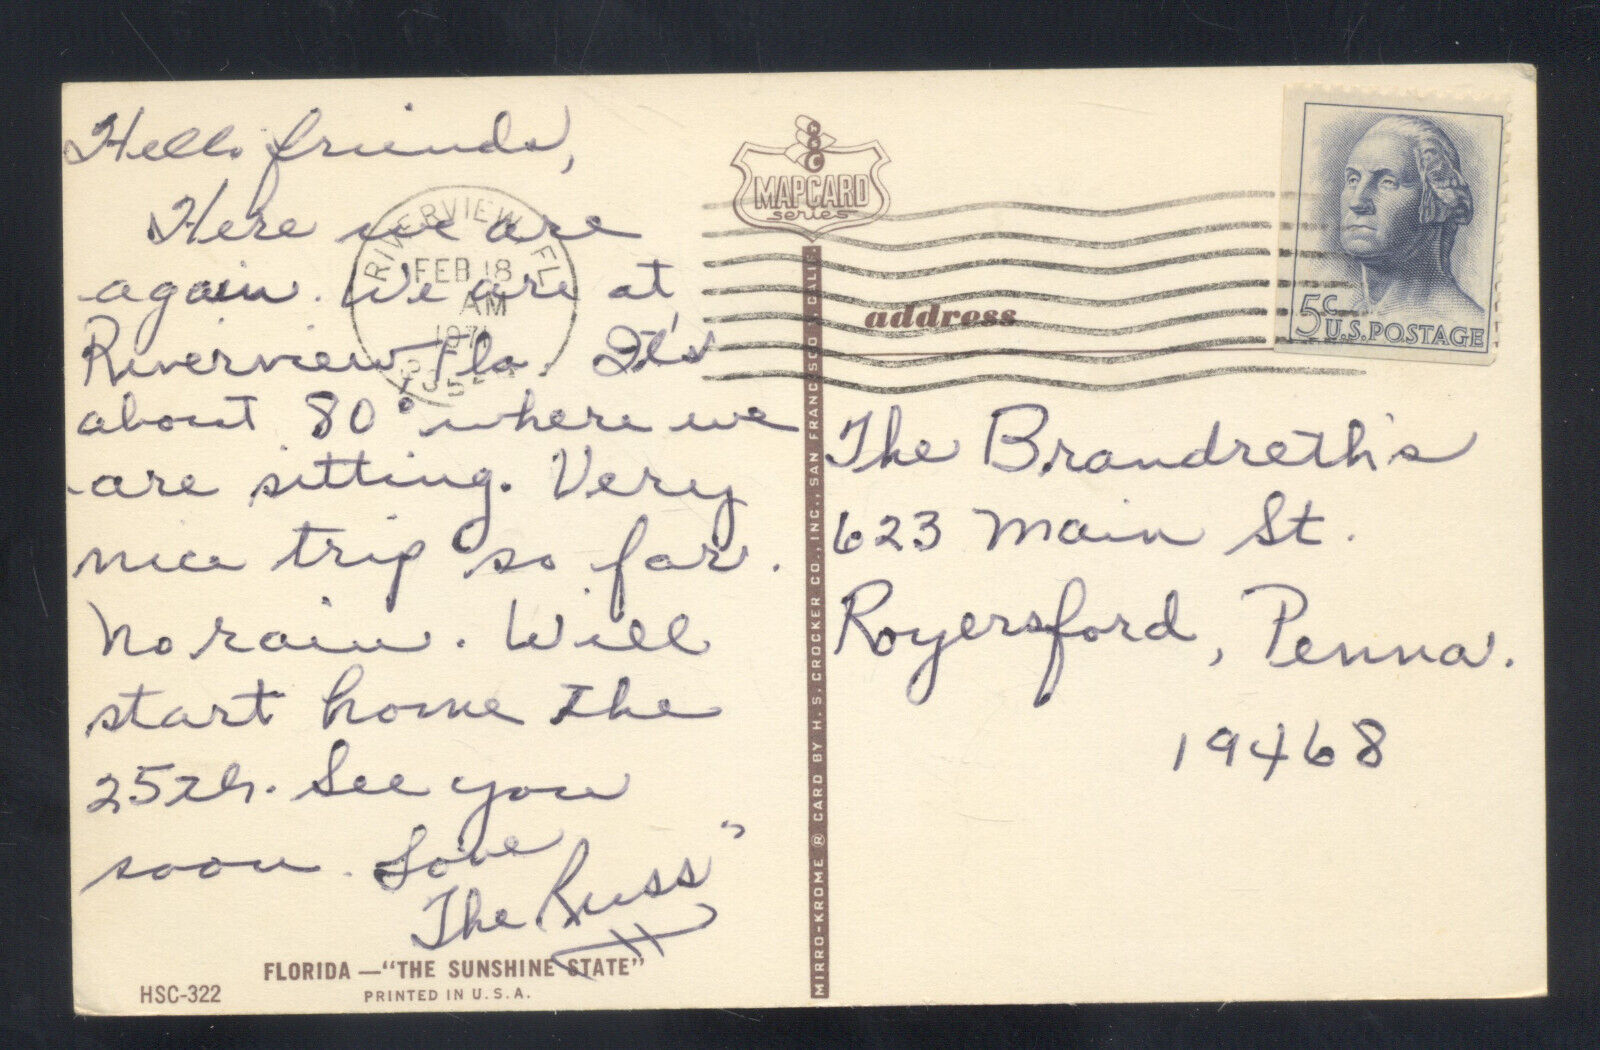 Hello friends,
Here we are
again. We are at
Riverview Fla. It's
about 80° where we
are sitting. Very
nice trip so far.
No rain. Will
start home the
25th. See you
soon. Love
The Russ"
FLORIDA —"THE SUNSHINE STATE"
HSC-322
PRINTED IN U.S.A.
RIVERVIEW, FL
FEB 18
AM
1971
MAPCARD
series
MIRRO-KROME ® CARD BY H.S. CROCKER CO., INC., SAN FRANCISCO, CALIF.
address
5c
U.S. POSTAGE
The Brandreth's
623 Main St.
Royersford, Penna.
19468